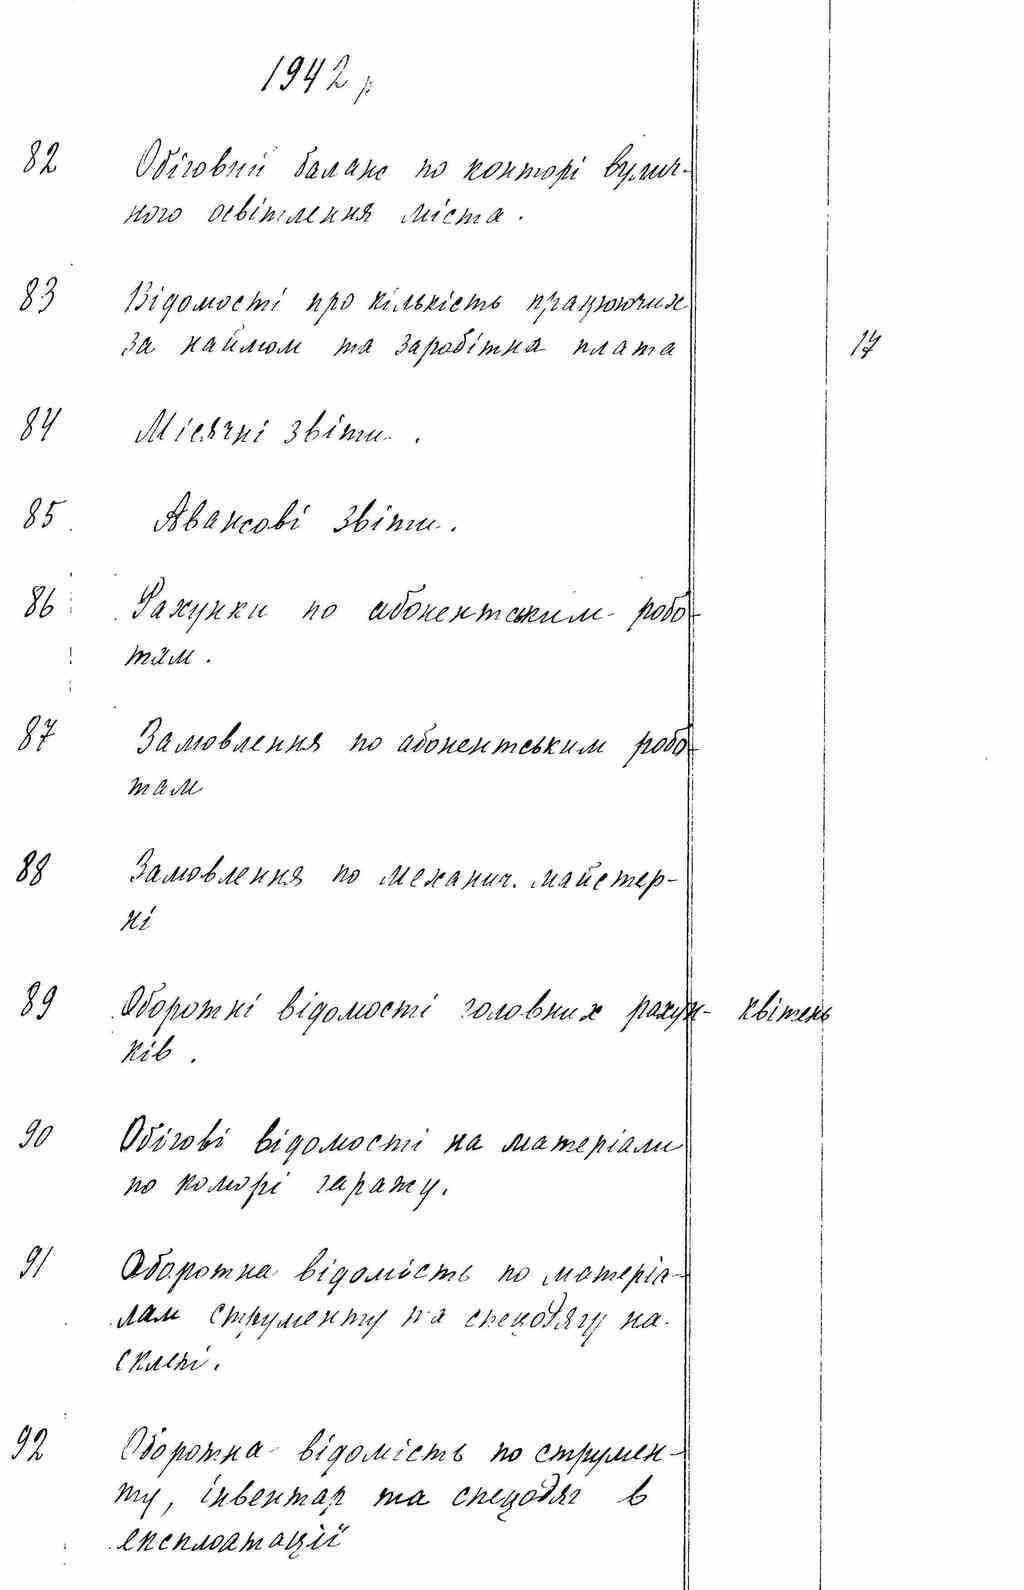 1942 р
82 Обіговий баланс по конторі вулич-
ного освітлення міста.
83 Відомості про кількість працюючих
за наймом та заробітна плата 17
84 Місячні звіти.
85 Авансові звіти.
86 Рахунки по абонентським робо-
там.
87 Замовлення по абонентським робо-
там
88 Замовлення по механич. майстер-
ні
89 Оборотні відомості головних рахун- квітень
ків.
90 Обігові відомості на матеріали
по коморі гаражу.
91 Оборотна відомість по матеріа-
лам струменту та спецодягу на
склепі.
92 Оборотна відомість по струмен-
ту, інвентар та спецодяг в
експлоатації